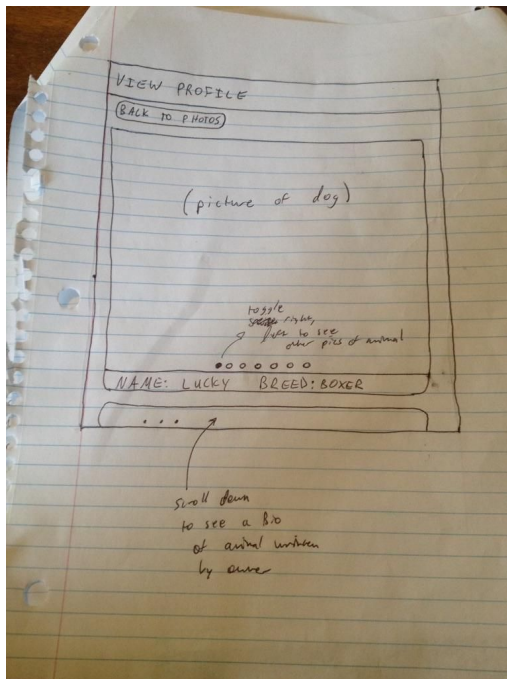 VIEW PROFILE
BACK TO PHOTOS
(picture of dog)
toggle
right,
to see
other pics of animal
NAME: LUCKY BREED: BOXER
...
Scroll down
to see a Bio
of animal written
by owner